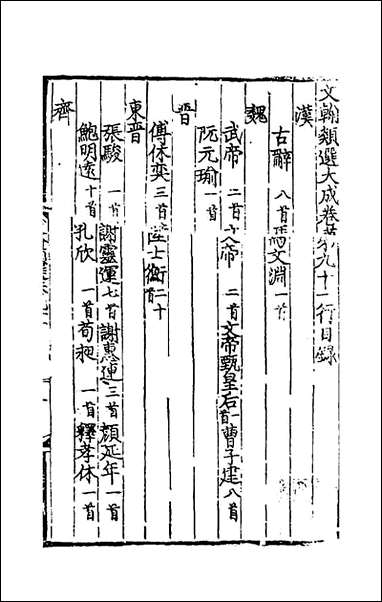 文翰類選大成卷第九十一行目錄
漢
古辭 八首 馬文淵 一首
魏
武帝 二首 文帝 二首 文帝甄皇后 一首 曹子建 八首
阮元瑜 一首
晉
傅休奕 三首 陸士衡 二十首
東晉
張駿 一首 謝靈運 七首 謝惠連 三首 顏延年 一首
鮑明遠 十首 孔欣 一首 荀昶 一首 釋孝休 一首
齊